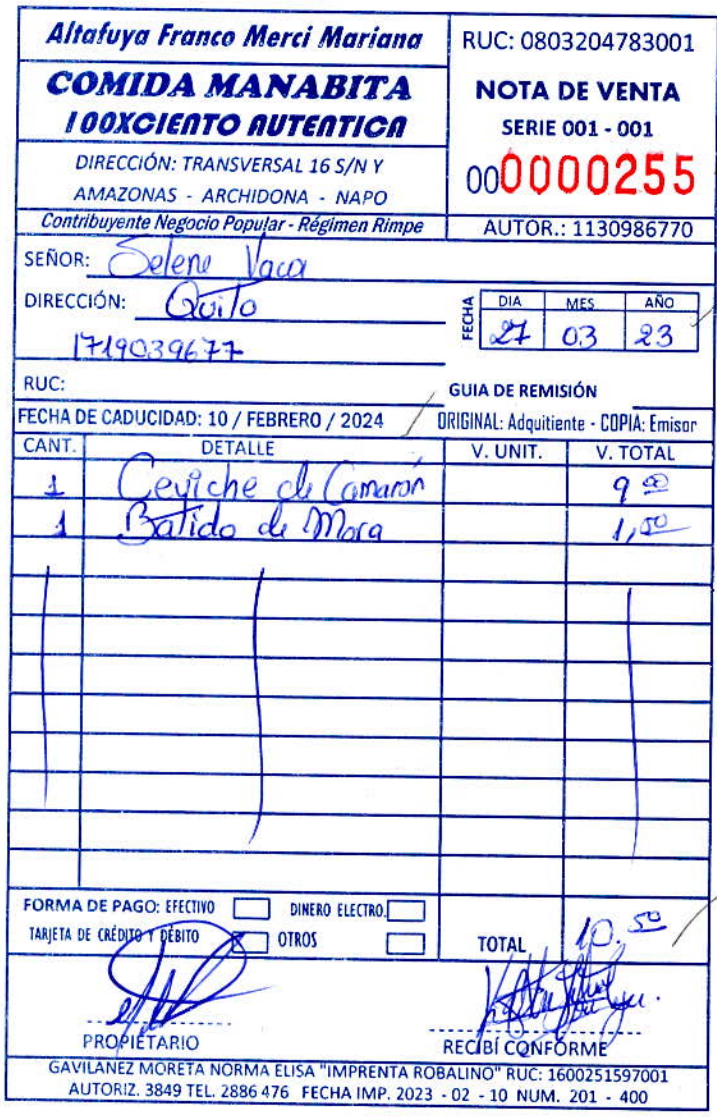 Altafuya Franco Merci Mariana
COMIDA MANABITA
100XCIENTO AUTENTICA
DIRECCIÓN: TRANSVERSAL 16 S/N Y
AMAZONAS - ARCHIDONA - NAPO
Contribuyente Negocio Popular - Régimen Rimpe
RUC: 0803204783001
NOTA DE VENTA
SERIE 001 - 001
000000255
AUTOR.: 1130986770
SEÑOR: Selene Vaca
DIRECCIÓN: Quito
1719039677
FECHA DIA MES AÑO
27 03 23
RUC:
GUIA DE REMISIÓN
FECHA DE CADUCIDAD: 10 / FEBRERO / 2024 ORIGINAL: Adquitiente - COPIA: Emisor
CANT. DETALLE V. UNIT. V. TOTAL
1 Ceviche de Camarón 9 00
1 Batido de Mora 1,50
FORMA DE PAGO: EFECTIVO DINERO ELECTRO.
TARJETA DE CRÉDITO Y DÉBITO OTROS
TOTAL 10.50
PROPIETARIO RECIBÍ CONFORME
GAVILANEZ MORETA NORMA ELISA "IMPRENTA ROBALINO" RUC: 1600251597001
AUTORIZ. 3849 TEL. 2886 476 FECHA IMP. 2023 - 02 - 10 NUM. 201 - 400